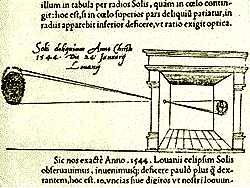 illum in tabula per radios Solis, quàm in cœlo contin-
git: hoc est, si in cœlo superior pars deliquiũ patiatur, in
radiis apparebit inferior deficere, vt ratio exigit optica.
Solis deliquium Anno Christi
1544. Die 24. Januarij
Louanij
Sic nos exactè Anno .1544. Louanii eclipsim Solis
obseruauimus, inuenimusq; deficere paulò plus q̃ dex-
tantem, hoc est .10. vncias siue digitos vt nostri loquun-